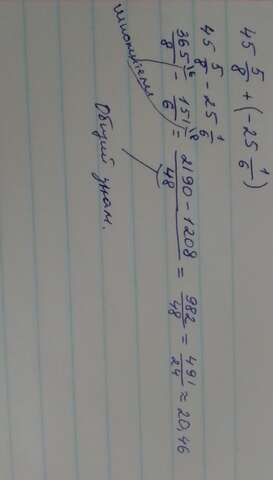 45 5/8 + (-25 1/6)
45 5/8 - 25 1/6
365/8 \6 - 151/6 \8 = 2190-1208/48 = 982/48 = 491/24 = 20,46
множители
Общий знам.